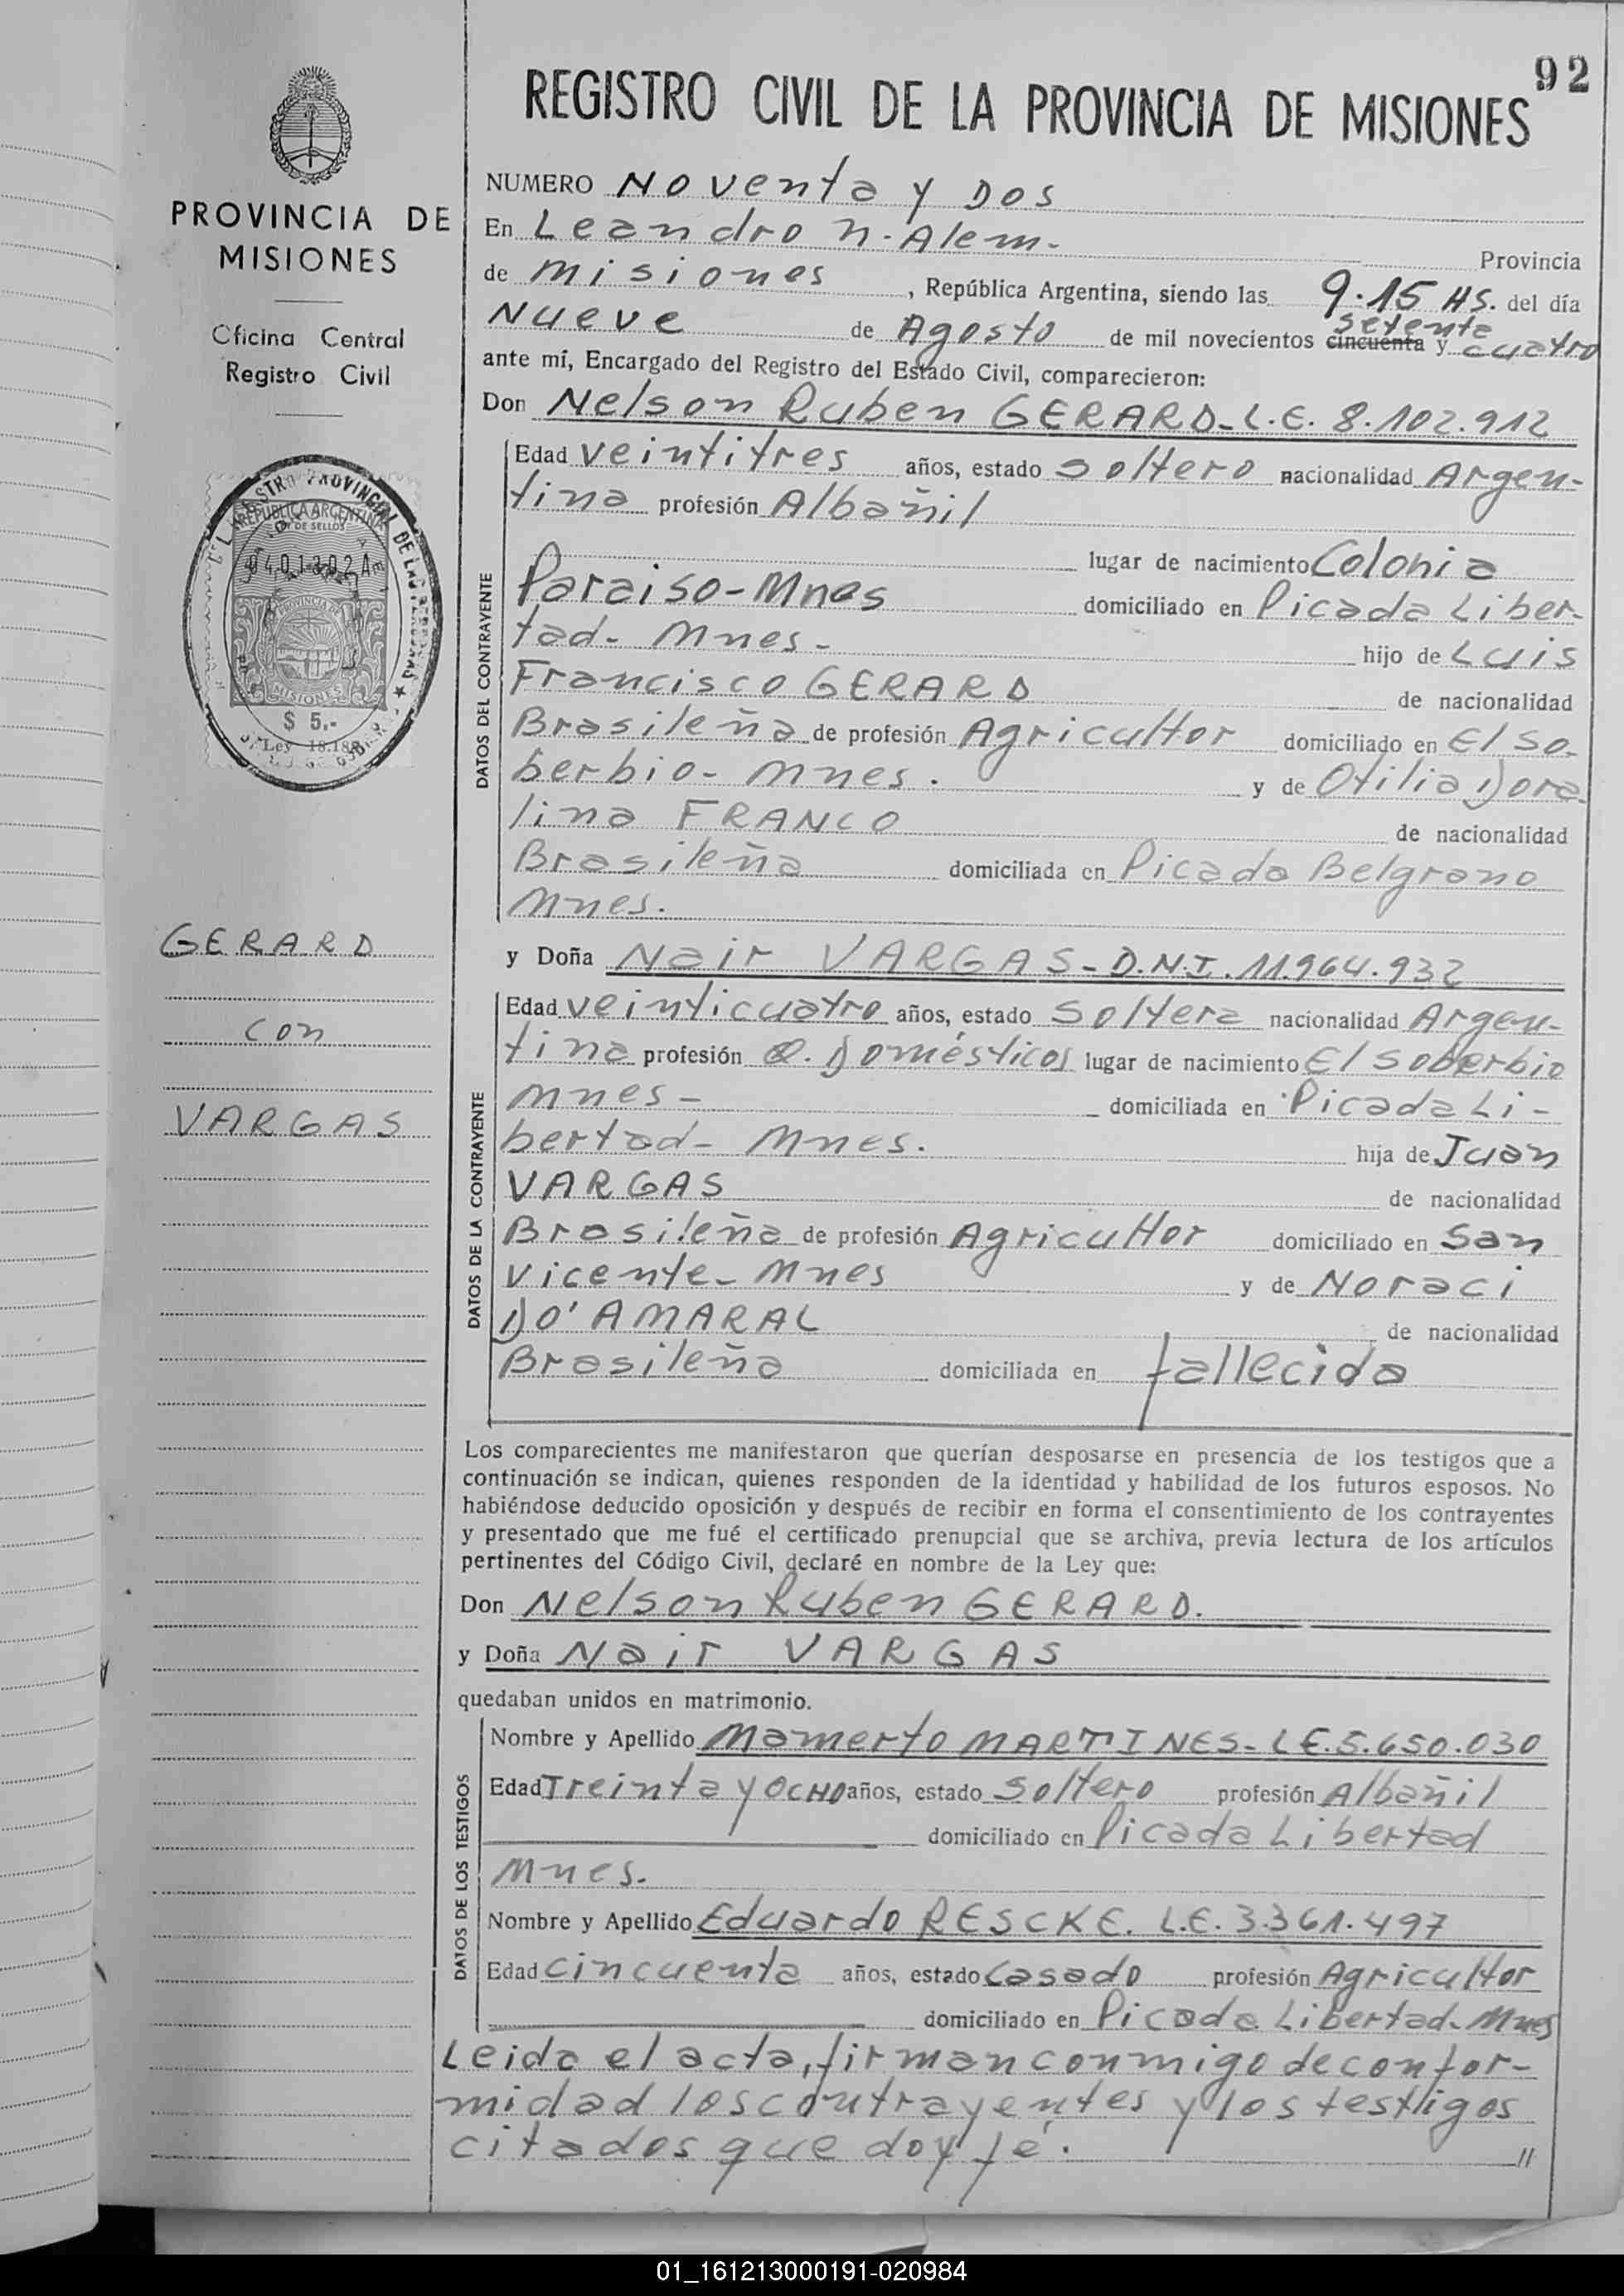 92
REGISTRO CIVIL DE LA PROVINCIA DE MISIONES
PROVINCIA DE
MISIONES
Oficina Central
Registro Civil
REPUBLICA ARGENTINA
DE SELLOS
PROVINCIA DE
MISIONES
$ 5,-
GERARD
con
VARGAS
NUMERO Noventa y Dos
En Leandro N. Alem. Provincia
de Misiones, República Argentina, siendo las 9.15 HS. del día
Nueve de Agosto de mil novecientos cincuenta setenta y cuatro
ante mí, Encargado del Registro del Estado Civil, comparecieron:
Don Nelson Ruben GERARD- L.E. 8.102.912
DATOS DEL CONTRAYENTE
Edad veintitres años, estado soltero nacionalidad Argen-
tina profesión Albañil
lugar de nacimiento Colonia
Paraiso-Mnes domiciliado en Picada Liber-
tad- Mnes- hijo de Luis
Francisco GERARD de nacionalidad
Brasileña de profesión Agricultor domiciliado en El So-
berbio- Mnes. y de Otilia Dora-
lina FRANCO de nacionalidad
Brasileña domiciliada en Picada Belgrano
Mnes.
y Doña Nair VARGAS- D.N.I. 11.964.932
DATOS DE LA CONTRAYENTE
Edad veinticuatro años, estado Soltera nacionalidad Argen-
tina profesión Q. Domésticos lugar de nacimiento El Soberbio
Mnes- domiciliada en Picada Li-
bertad- Mnes. hija de Juan
VARGAS de nacionalidad
Brasileña de profesión Agricultor domiciliado en San
Vicente- Mnes y de Noraci
DO' AMARAL de nacionalidad
Brasileña domiciliada en fallecida
Los comparecientes me manifestaron que querían desposarse en presencia de los testigos que a
continuación se indican, quienes responden de la identidad y habilidad de los futuros esposos. No
habiéndose deducido oposición y después de recibir en forma el consentimiento de los contrayentes
y presentado que me fué el certificado prenupcial que se archiva, previa lectura de los artículos
pertinentes del Código Civil, declaré en nombre de la Ley que:
Don Nelson Ruben GERARD.
y Doña Nair VARGAS
quedaban unidos en matrimonio.
DATOS DE LOS TESTIGOS
Nombre y Apellido Mamerto MARTINES- L.E. 5.650.030
Edad Treinta y OCHO años, estado Soltero profesión Albañil
domiciliado en Picada Libertad
Mnes.
Nombre y Apellido Eduardo RESCKE. L.E. 3.361.497
Edad Cincuenta años, estado Casado profesión Agricultor
domiciliado en Picada Libertad- Mnes
Leida el acta, firman conmigo de confor-
midad los contrayentes y los testigos
citados que doy fé. //
01_161213000191-020984